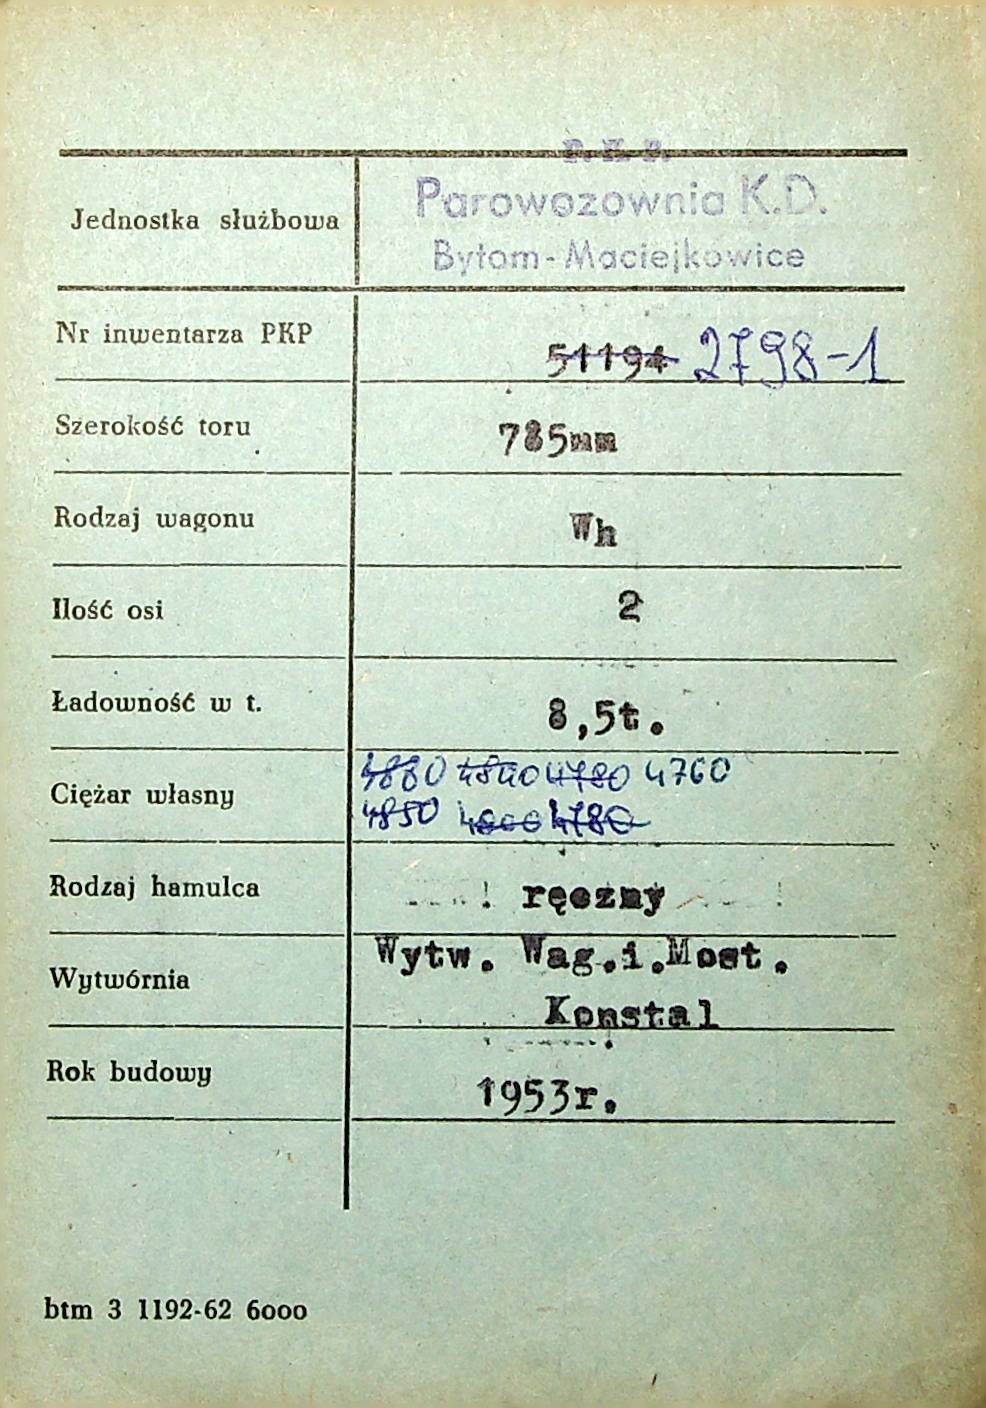 P. K. P.
Jednostka służbowa Parowozownia K.D.
Bytom-Maciejkowice
Nr inwentarza PKP 51194 2798-1
Szerokość toru 785mm
Rodzaj wagonu Wh
Ilość osi 2
Ładowność w t. 8,5t.
Ciężar własny 4880 4840 4780 4760
4850 4800 4780
Rodzaj hamulca ręczny
Wytwórnia Wytw. Wag.i.Most.
Konstal
Rok budowy 1953r.
btm 3 1192-62 6000